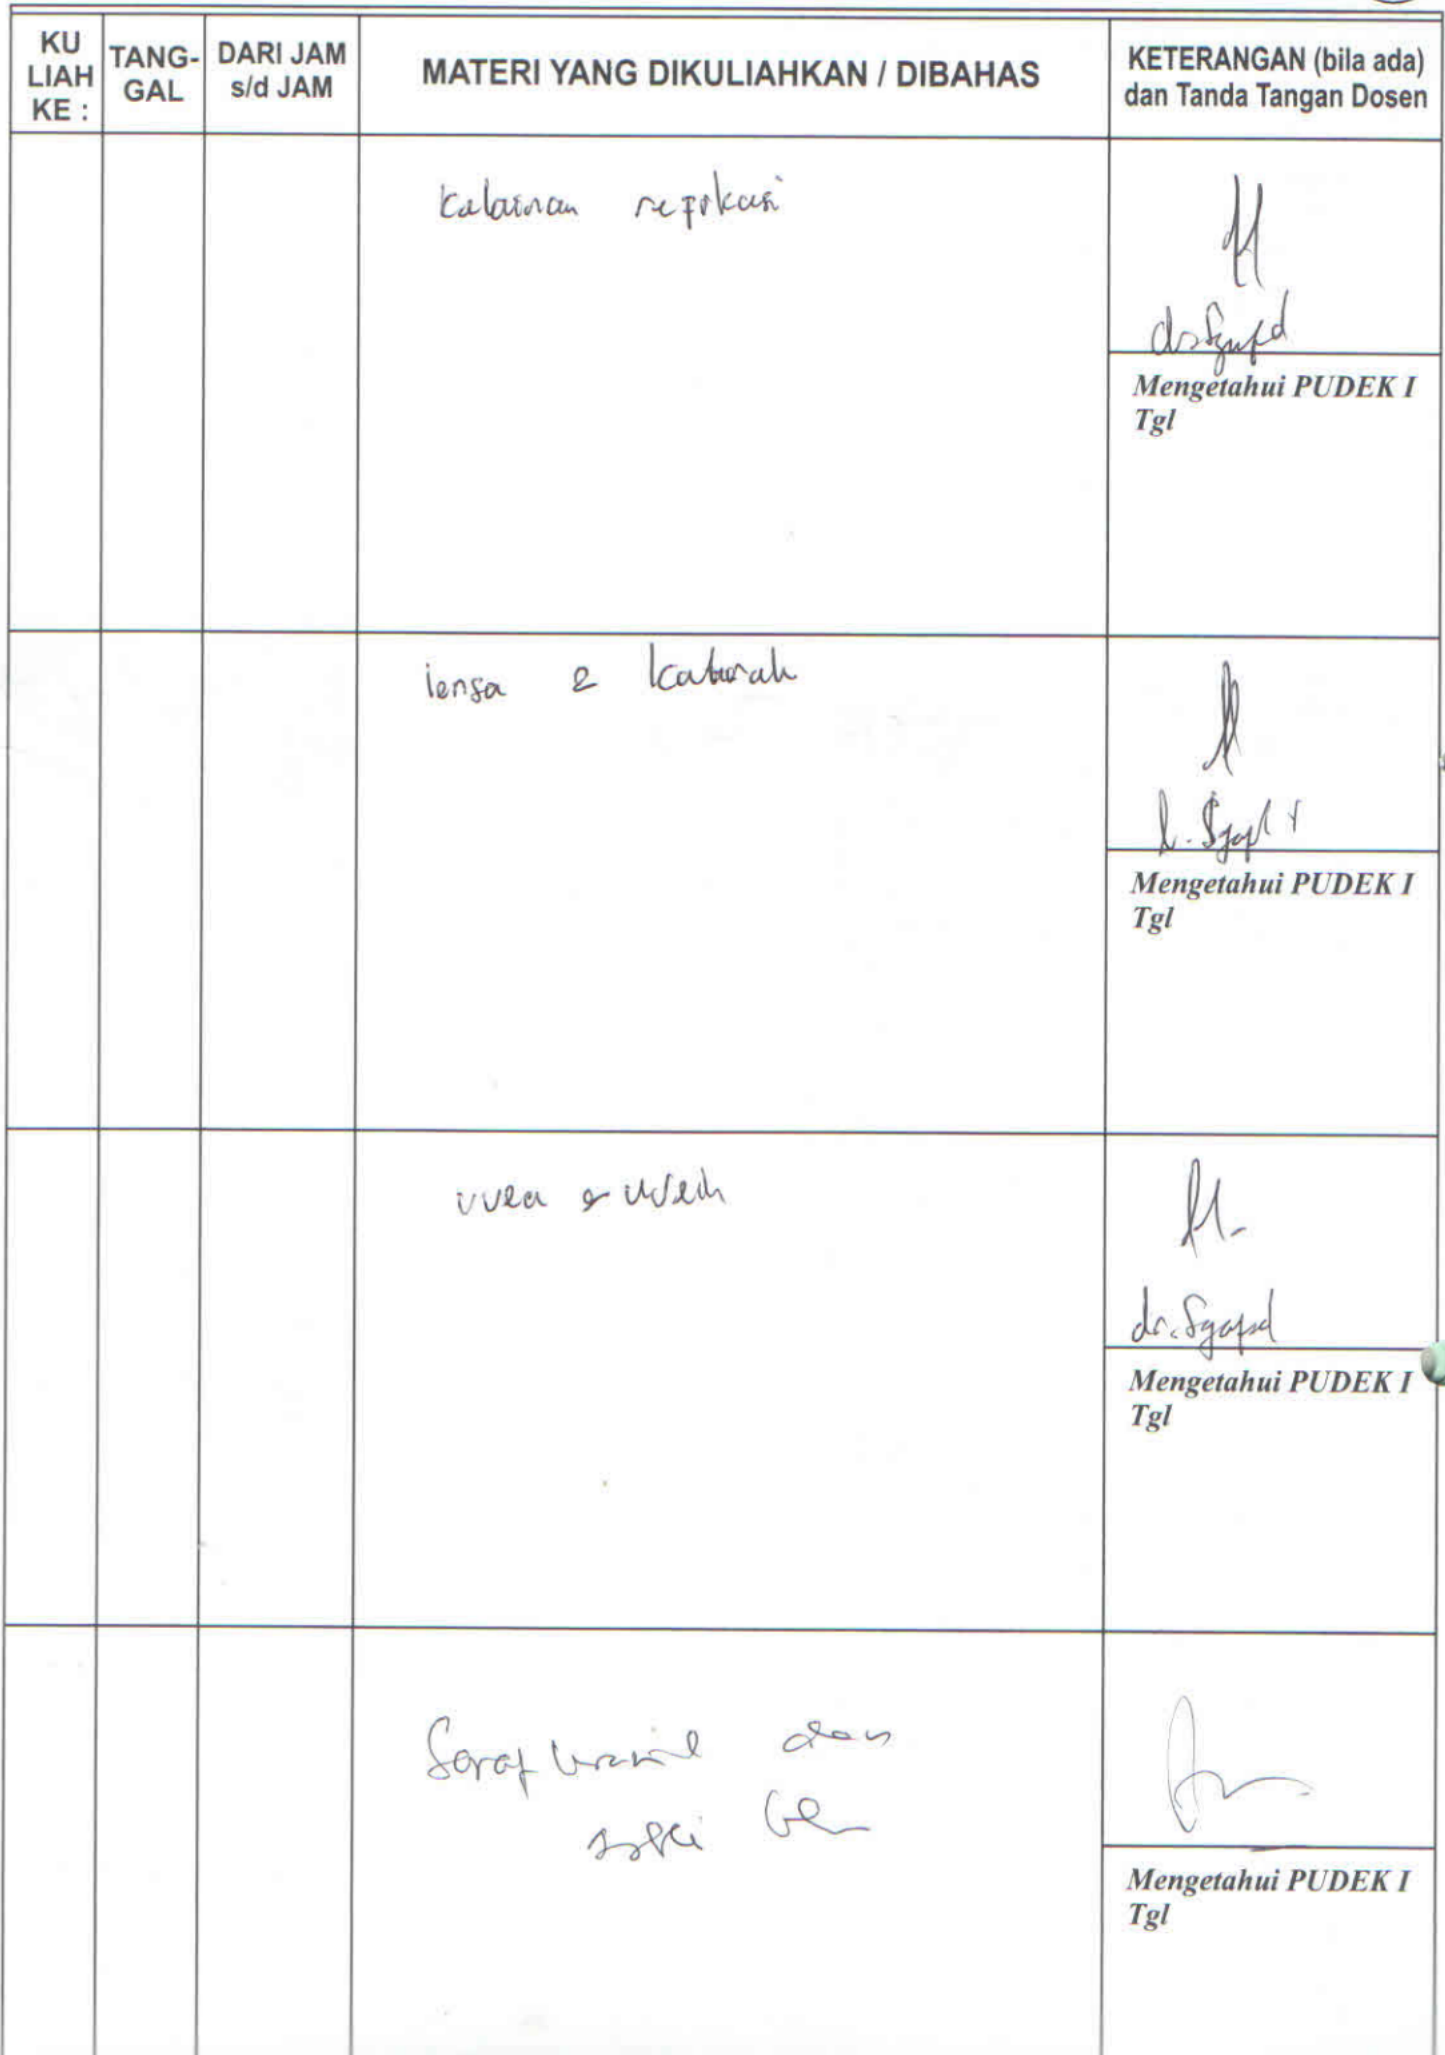 KU LIAH KE :
TANG-GAL
DARI JAM s/d JAM
MATERI YANG DIKULIAHKAN / DIBAHAS
KETERANGAN (bila ada) dan Tanda Tangan Dosen
kelainan refraksi
Mengetahui PUDEK I
Tgl
lensa & katarak
Mengetahui PUDEK I
Tgl
uvea & uveitis
dr. Syafril
Mengetahui PUDEK I
Tgl
Saraf kranial dan
Mengetahui PUDEK I
Tgl